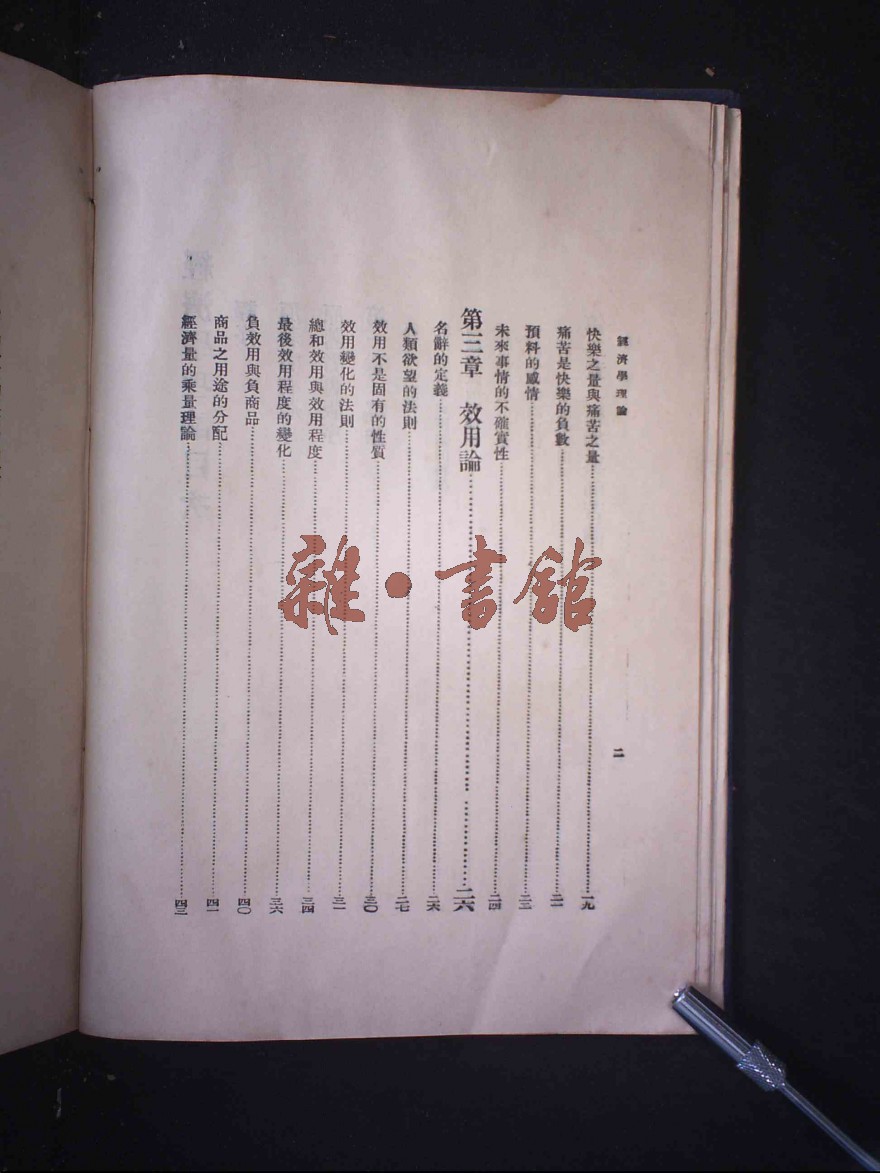 經濟學理論
二
快樂之量與痛苦之量……一九
痛苦是快樂的負數……二一
預料的感情……二三
未來事情的不確實性……二四
第三章　效用論……二六
名辭的定義……二六
人類欲望的法則……二七
效用不是固有的性質……三〇
效用變化的法則……三一
總和效用與效用程度……三四
最後效用程度的變化……三六
負效用與負商品……四〇
商品之用途的分配……四一
經濟量的乘量理論……四三
雜·書館